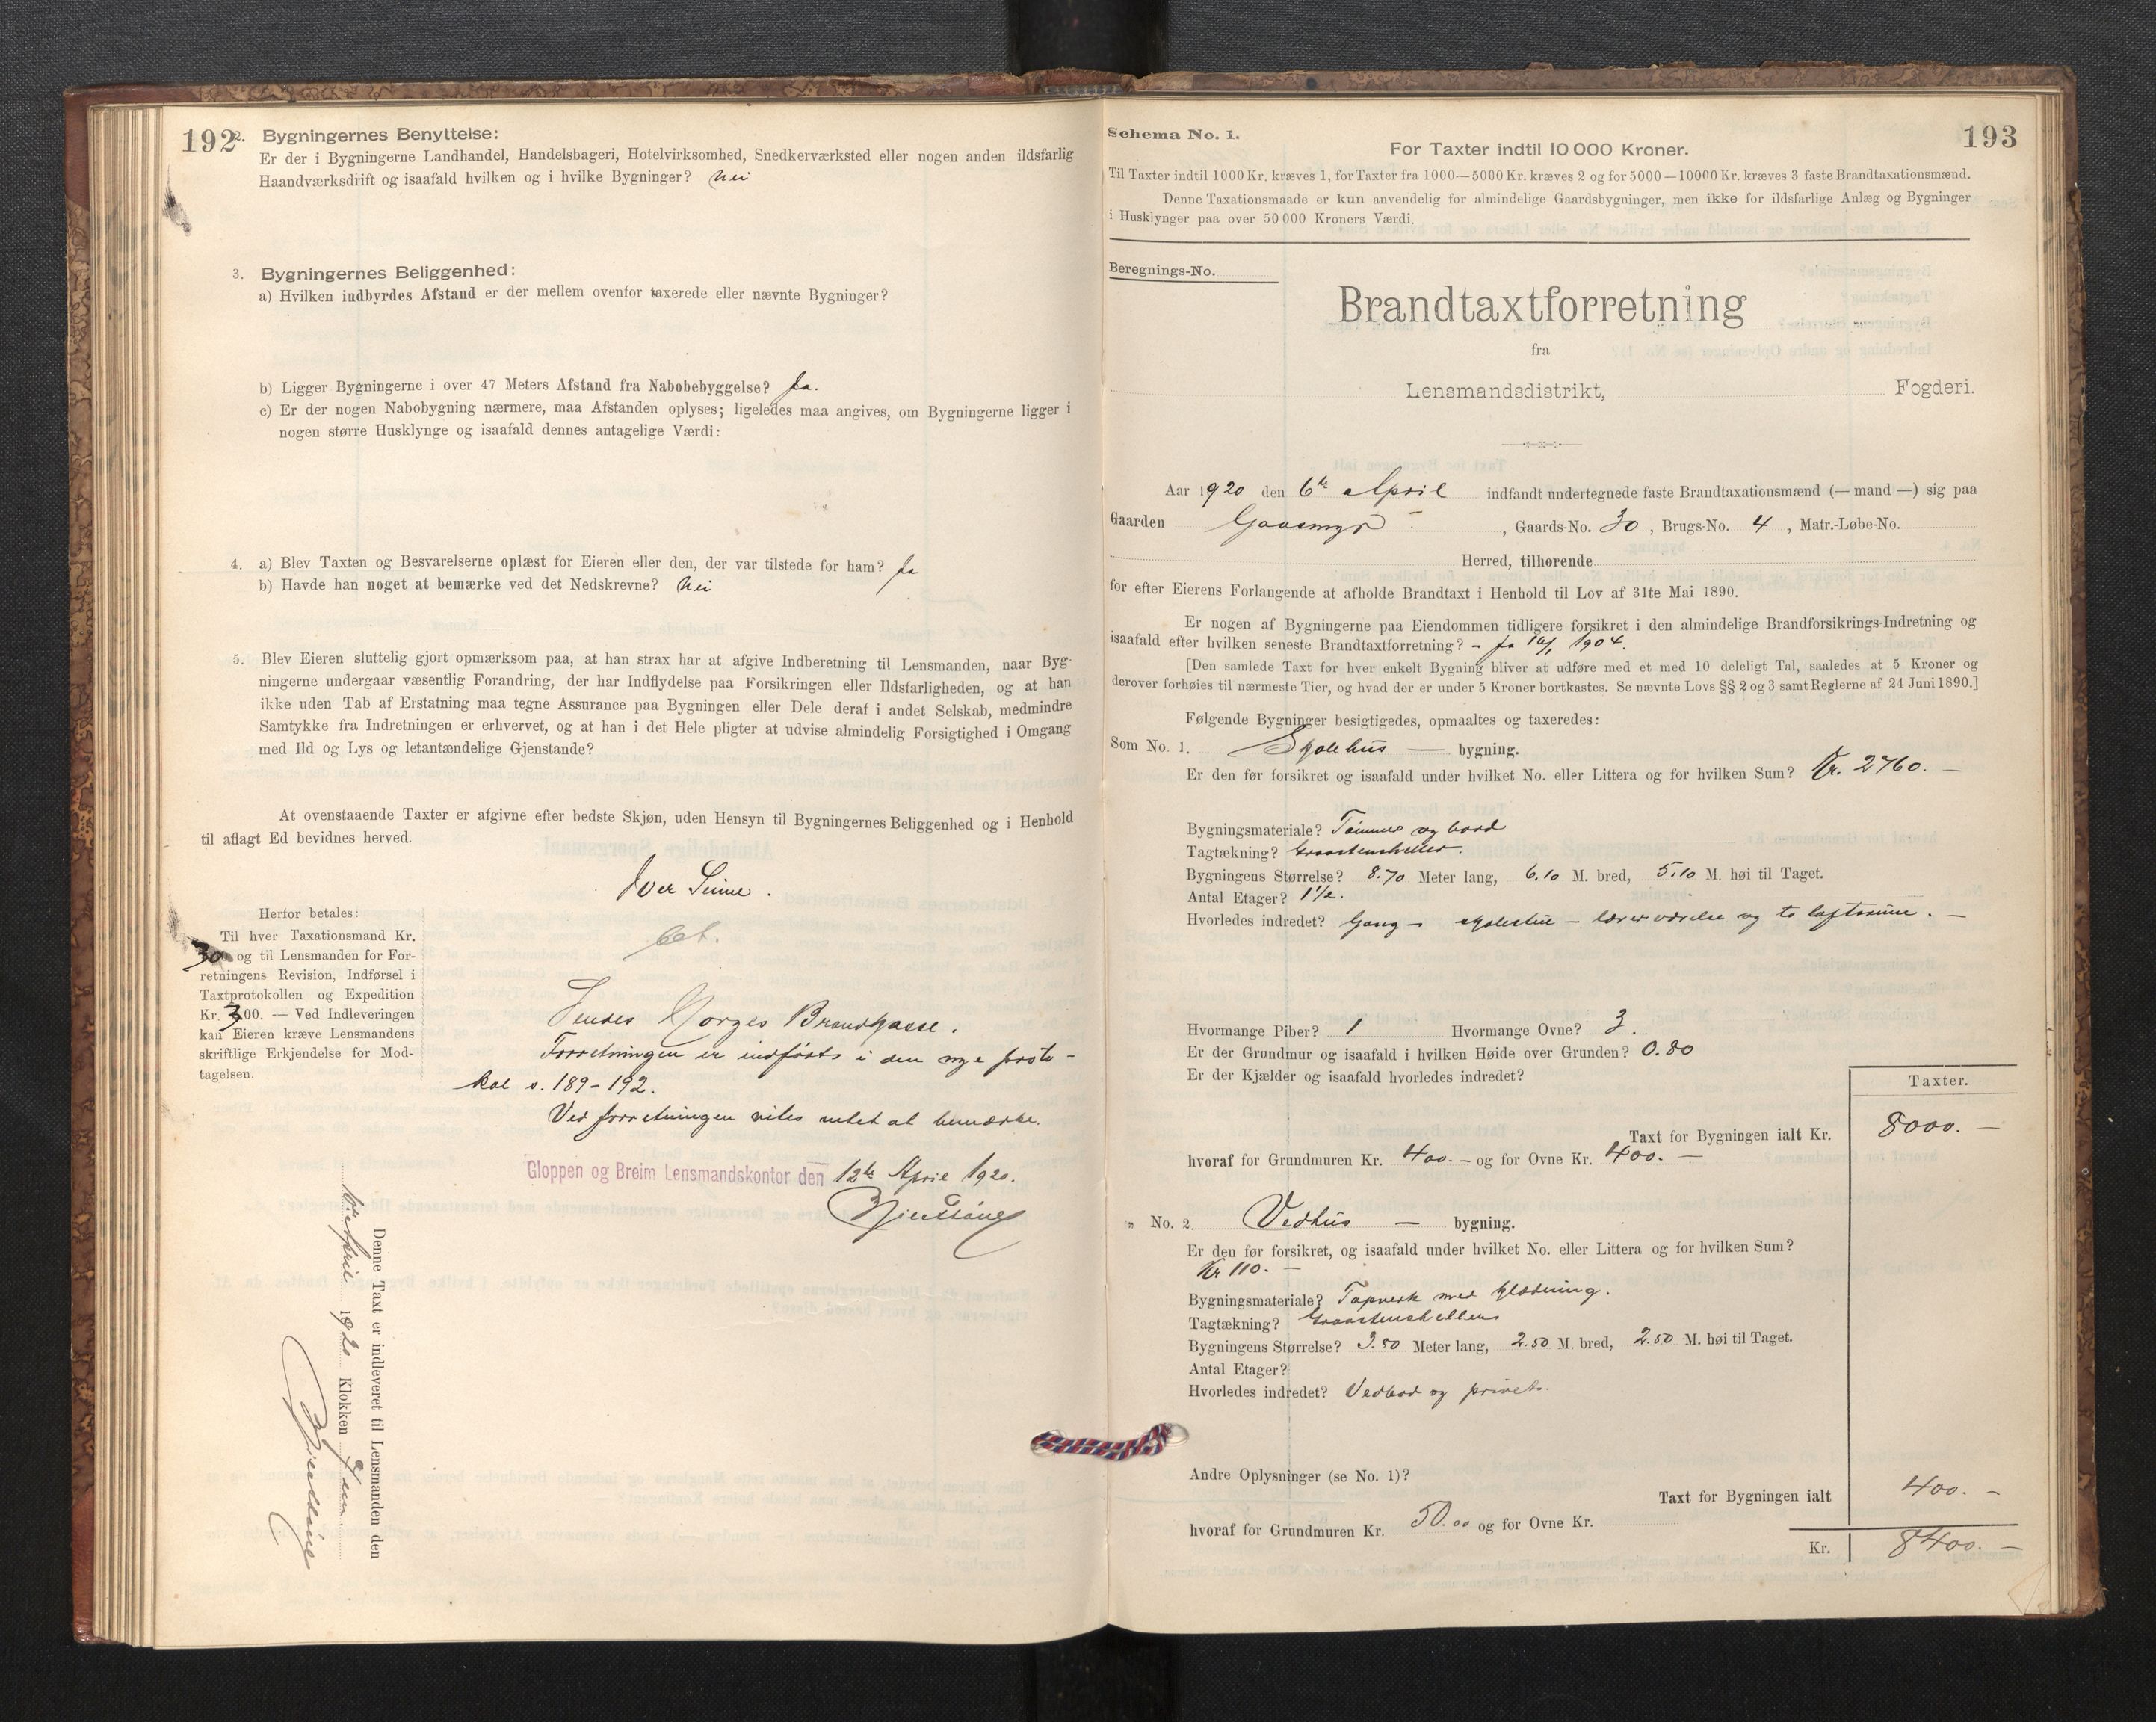 192
2. Bygningernes Benyttelse:
Er der i Bygningerne Landhandel, Handelsbageri, Hotelvirksomhed, Snedkerværksted eller nogen anden ildsfarlig
Haandværksdrift og isaafald hvilken og i hvilke Bygninger? Nei
3. Bygningernes Beliggenhed:
a) Hvilken indbyrdes Afstand er der mellem ovenfor taxerede eller nævnte Bygninger?
b) Ligger Bygningerne i over 47 Meters Afstand fra Nabobebyggelse? Ja.
c) Er der nogen Nabobygning nærmere, maa Afstanden oplyses; ligeledes maa angives, om Bygningerne ligger i
nogen større Husklynge og isaafald dennes antagelige Værdi:
4. a) Blev Taxten og Besvarelserne oplæst for Eieren eller den, der var tilstede for ham? Ja
b) Havde han noget at bemærke ved det Nedskrevne? Nei
5. Blev Eieren sluttelig gjort opmærksom paa, at han strax har at afgive Indberetning til Lensmanden, naar Byg-
ningerne undergaar væsentlig Forandring, der har Indflydelse paa Forsikringen eller Ildsfarligheden, og at han
ikke uden Tab af Erstatning maa tegne Assurance paa Bygningen eller Dele deraf i andet Selskab, medmindre
Samtykke fra Indretningen er erhvervet, og at han i det Hele pligter at udvise almindelig Forsigtighed i Omgang
med Ild og Lys og letantændelige Gjenstande?
At ovenstaaende Taxter er afgivne efter bedste Skjøn, uden Hensyn til Bygningernes Beliggenhed og i Henhold
til aflagt Ed bevidnes herved.
Iver Seime.
Herfor betales:
Til hver Taxationsmand Kr.
30 og til Lensmanden for For-
retningens Revision, Indførsel i
Taxtprotokollen og Expedition
Kr. 3.00. — Ved Indleveringen
kan Eieren kræve Lensmandens
skriftlige Erkjendelse for Mod-
tagelsen.
bet.
Sendes Norges Brandkasse.
Forretningen er indførts i den nye proto-
kol s. 189-192.
Ved forretningen vites intet at bemærke.
Gloppen og Breim Lensmandskontor den 12te April 1920.
Denne Taxt er indleveret til Lensmanden den
April 1920 Klokken
Schema No. 1.
193
For Taxter indtil 10 000 Kroner.
Til Taxter indtil 1000 Kr. kræves 1, for Taxter fra 1000—5000 Kr. kræves 2 og for 5000—10000 Kr. kræves 3 faste Brandtaxationsmænd.
Denne Taxationsmaade er kun anvendelig for almindelige Gaardsbygninger, men ikke for ildsfarlige Anlæg og Bygninger
i Husklynger paa over 50 000 Kroners Værdi.
Beregnings-No.
Brandtaxtforretning
fra
Lensmandsdistrikt, Fogderi.
Aar 1920 den 6te April indfandt undertegnede faste Brandtaxationsmænd (— mand —) sig paa
Gaarden Gaasmyr, Gaards-No. 30, Brugs-No. 4, Matr.-Løbe-No.
Herred, tilhørende
for efter Eierens Forlangende at afholde Brandtaxt i Henhold til Lov af 31te Mai 1890.
Er nogen af Bygningerne paa Eiendommen tidligere forsikret i den almindelige Brandforsikrings-Indretning og
isaafald efter hvilken seneste Brandtaxtforretning? - Ja 1904.
[Den samlede Taxt for hver enkelt Bygning bliver at udføre med et med 10 deleligt Tal, saaledes at 5 Kroner og
derover forhøies til nærmeste Tier, og hvad der er under 5 Kroner bortkastes. Se nævnte Lovs §§ 2 og 3 samt Reglerne af 24 Juni 1890.]
Følgende Bygninger besigtigedes, opmaaltes og taxeredes:
Som No. 1. Skolehus — bygning.
Er den før forsikret og isaafald under hvilket No. eller Littera og for hvilken Sum? Kr. 2760. —
Bygningsmateriale? Tømmer og bord
Tagtækning? Graastensheller.
Bygningens Størrelse? 8.70 Meter lang, 6.10 M. bred, 5.10 M. høi til Taget.
Antal Etager? 1½.
Hvorledes indredet? Gang - skolestue - lærerværelse og to loftsrum. —
Hvormange Piber? 1 Hvormange Ovne? 3.
Er der Grundmur og isaafald i hvilken Høide over Grunden? 0.80
Er der Kjælder og isaafald hvorledes indredet?
Taxter.
Taxt for Bygningen ialt Kr. 8000. —
hvoraf for Grundmuren Kr. 400. — og for Ovne Kr. 400. —
" No. 2. Vedhus — bygning.
Er den før forsikret, og isaafald under hvilket No. eller Littera og for hvilken Sum?
Kr 110. —
Bygningsmateriale? med klædning.
Tagtækning? Graastensheller
Bygningens Størrelse? 3.50 Meter lang, 2.50 M. bred, 2.50 M. høi til Taget.
Antal Etager?
Hvorledes indredet? Vedbod og privet.
Andre Oplysninger (se No. 1)?
Taxt for Bygningen ialt 400. —
hvoraf for Grundmuren Kr. 50.00 og for Ovne Kr.
Kr. 8400. —